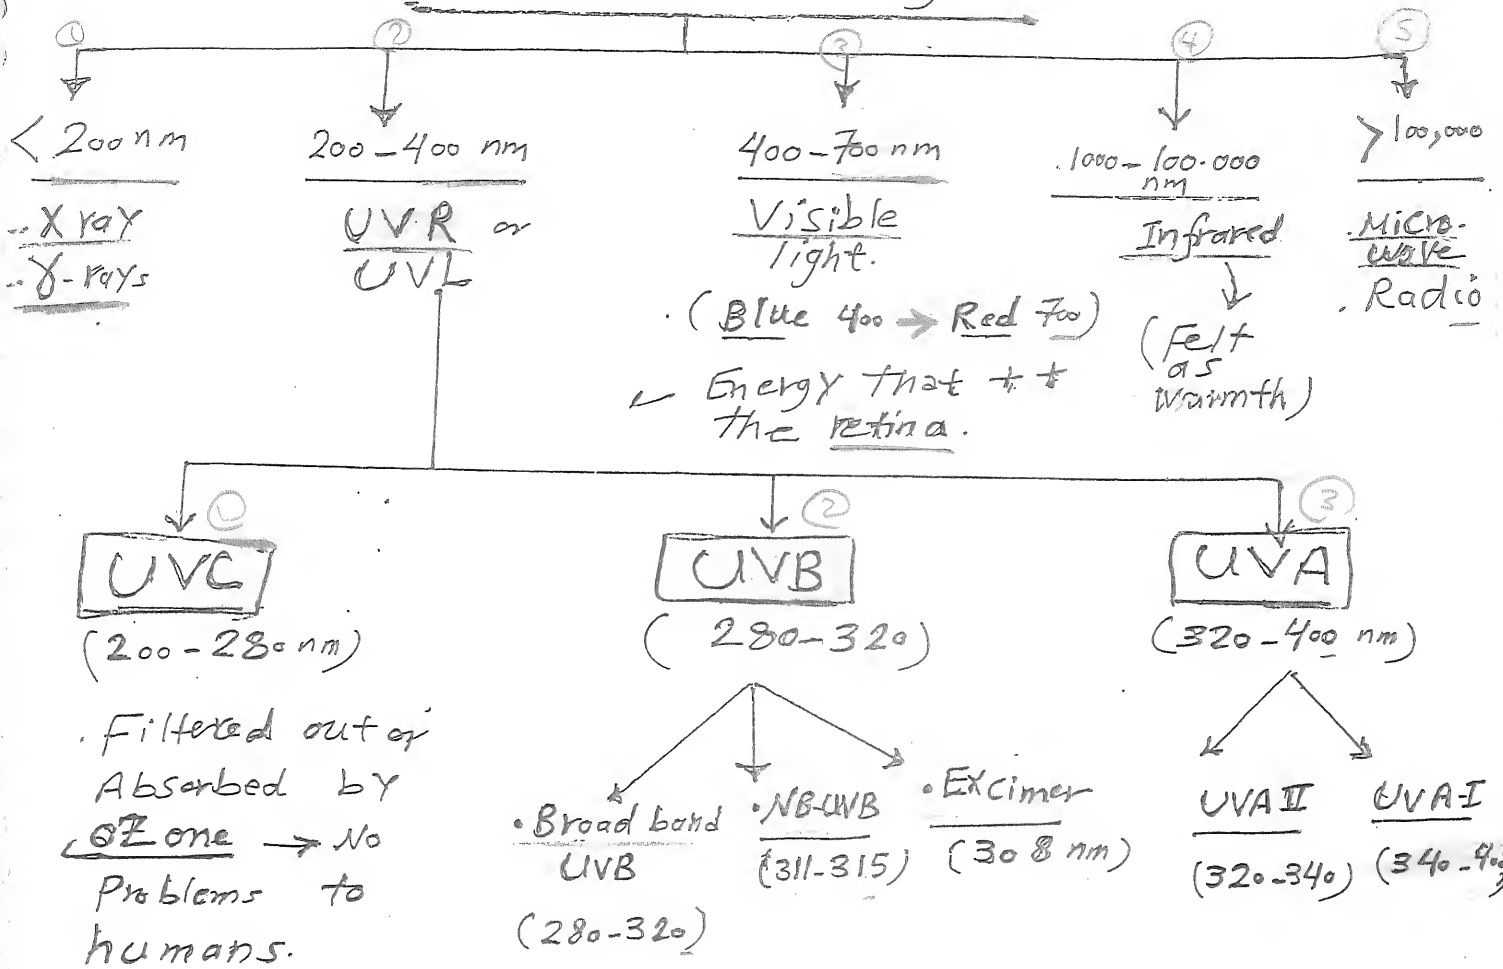 1
2
3
4
5
< 200 nm
-- X ray
-- γ-rays
200 - 400 nm
UVR or
UVL
400 - 700 nm
Visible
light.
. (Blue 400 → Red 700)
Energy that + +
the retina.
.1000 - 100.000
nm
Infrared
(Felt
as
Warmth)
> 100,000
. Micro-
wave
. Radio
1
UVC
(200 - 280 nm)
. Filtered out or
Absorbed by
OZone → No
Problems to
humans.
2
UVB
( 280 - 320)
• Broad band
UVB
(280 - 320)
• NB-UVB
(311-315)
• Excimer
(308 nm)
3
UVA
(320 - 400 nm)
UVA II
(320-340)
UVA-I
(340 - 400